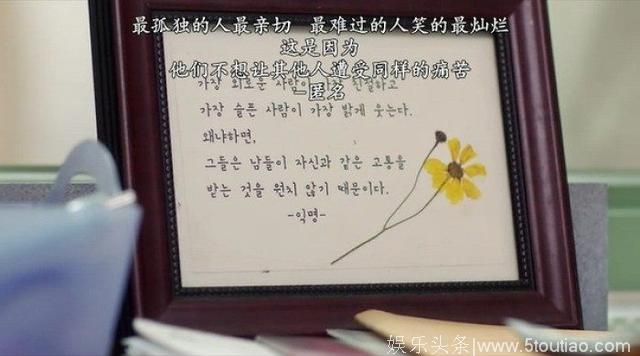 最孤独的人最亲切 最难过的人笑的最灿烂
这是因为
他们不想让其他人遭受同样的痛苦
-匿名
가장 외로운 사람이 가장 친절하고
가장 슬픈 사람이 가장 밝게 웃는다.
왜냐하면,
그들은 남들이 자신과 같은 고통을
받는 것을 원치 않기 때문이다.
-익명-
娱乐头条/www.5toutiao.com